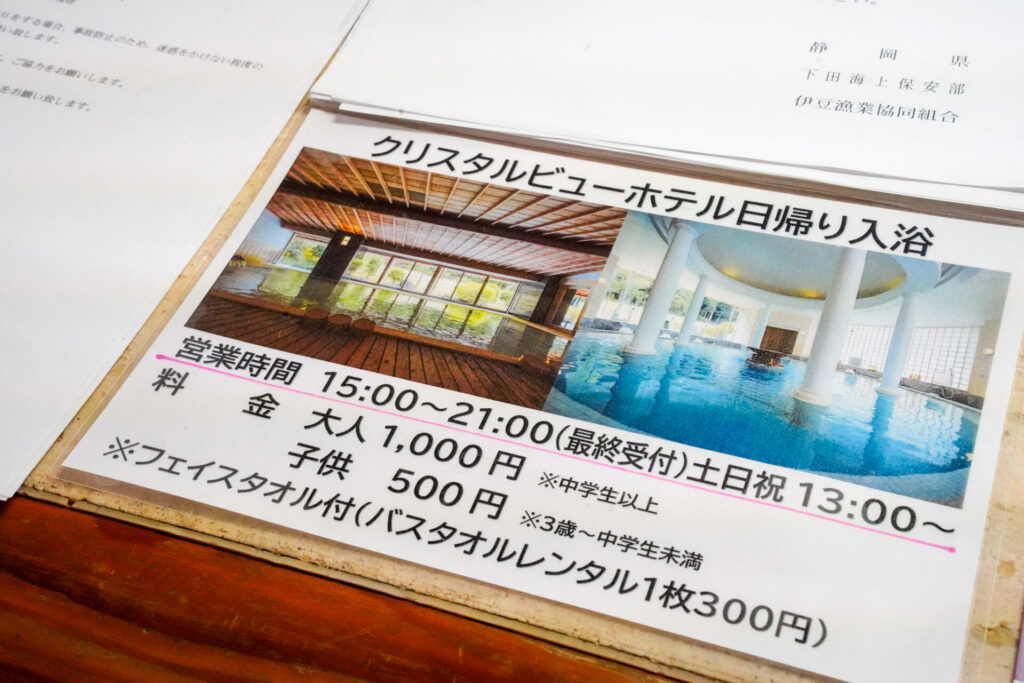 りをする場合、事故防止のため、迷惑をかけない程度の
い致します。
、ご協力をお願いします。
をお願い致します。
静岡県
下田海上保安部
伊豆漁業協同組合
クリスタルビューホテル日帰り入浴
営業時間 15:00～21:00(最終受付)土日祝 13:00～
料金 大人 1,000円 ※中学生以上
子供 500円 ※3歳～中学生未満
※フェイスタオル付(バスタオルレンタル1枚300円)